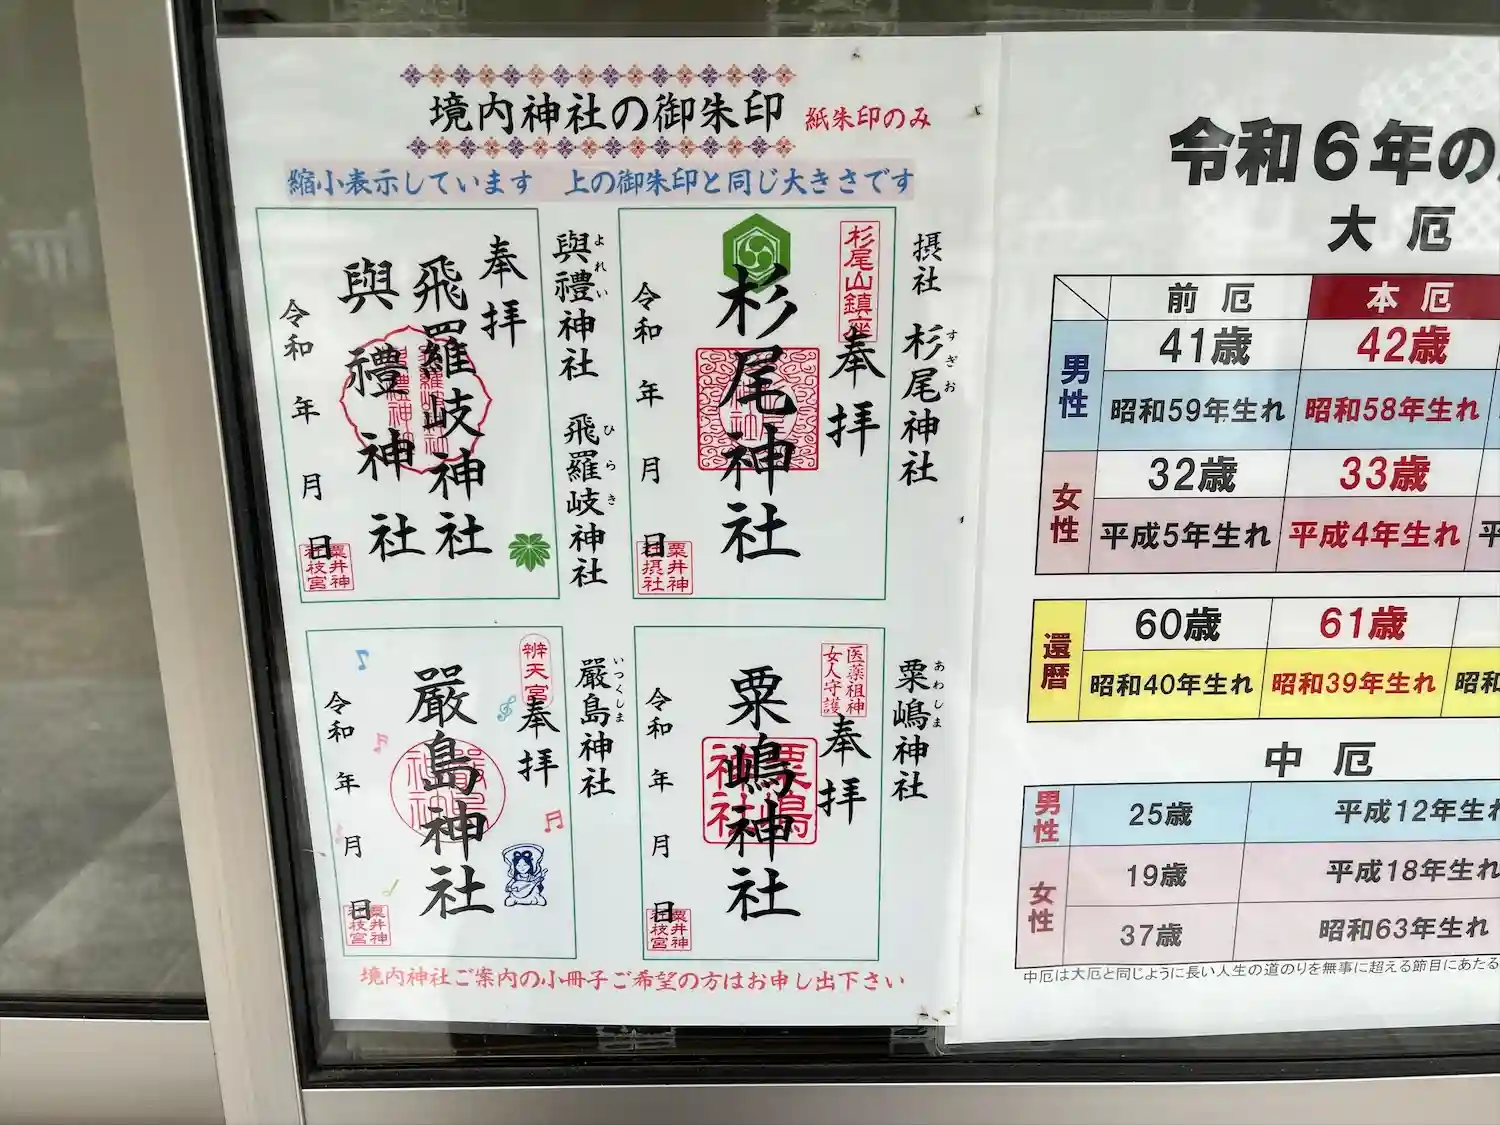 境内神社の御朱印 紙朱印のみ
縮小表示しています 上の御朱印と同じ大きさです
摂社 杉尾神社
すぎお
杉尾山鎮座
奉拝
杉尾神社
令和 年 月 日
粟井神
社摂社
與禮神社 飛羅岐神社
よれい ひらき
奉拝
飛羅岐神社
與禮神社
令和 年 月 日
粟井神
社枝宮
粟嶋神社
あわしま
医薬祖神
女人守護
奉拝
粟嶋神社
粟嶋
神社
令和 年 月 日
粟井神
社枝宮
嚴島神社
いつくしま
辨天宮
奉拝
嚴島神社
嚴島
神社
令和 年 月 日
粟井神
社枝宮
境内神社ご案内の小冊子ご希望の方はお申し出下さい
令和6年の
大厄
前厄 本厄
男性 41歳 42歳
昭和59年生れ 昭和58年生れ
女性 32歳 33歳
平成5年生れ 平成4年生れ 平
還暦 60歳 61歳
昭和40年生れ 昭和39年生れ 昭和
中厄
男性 25歳 平成12年生れ
女性 19歳 平成18年生れ
37歳 昭和63年生れ
中厄は大厄と同じように長い人生の道のりを無事に超える節目にあたる